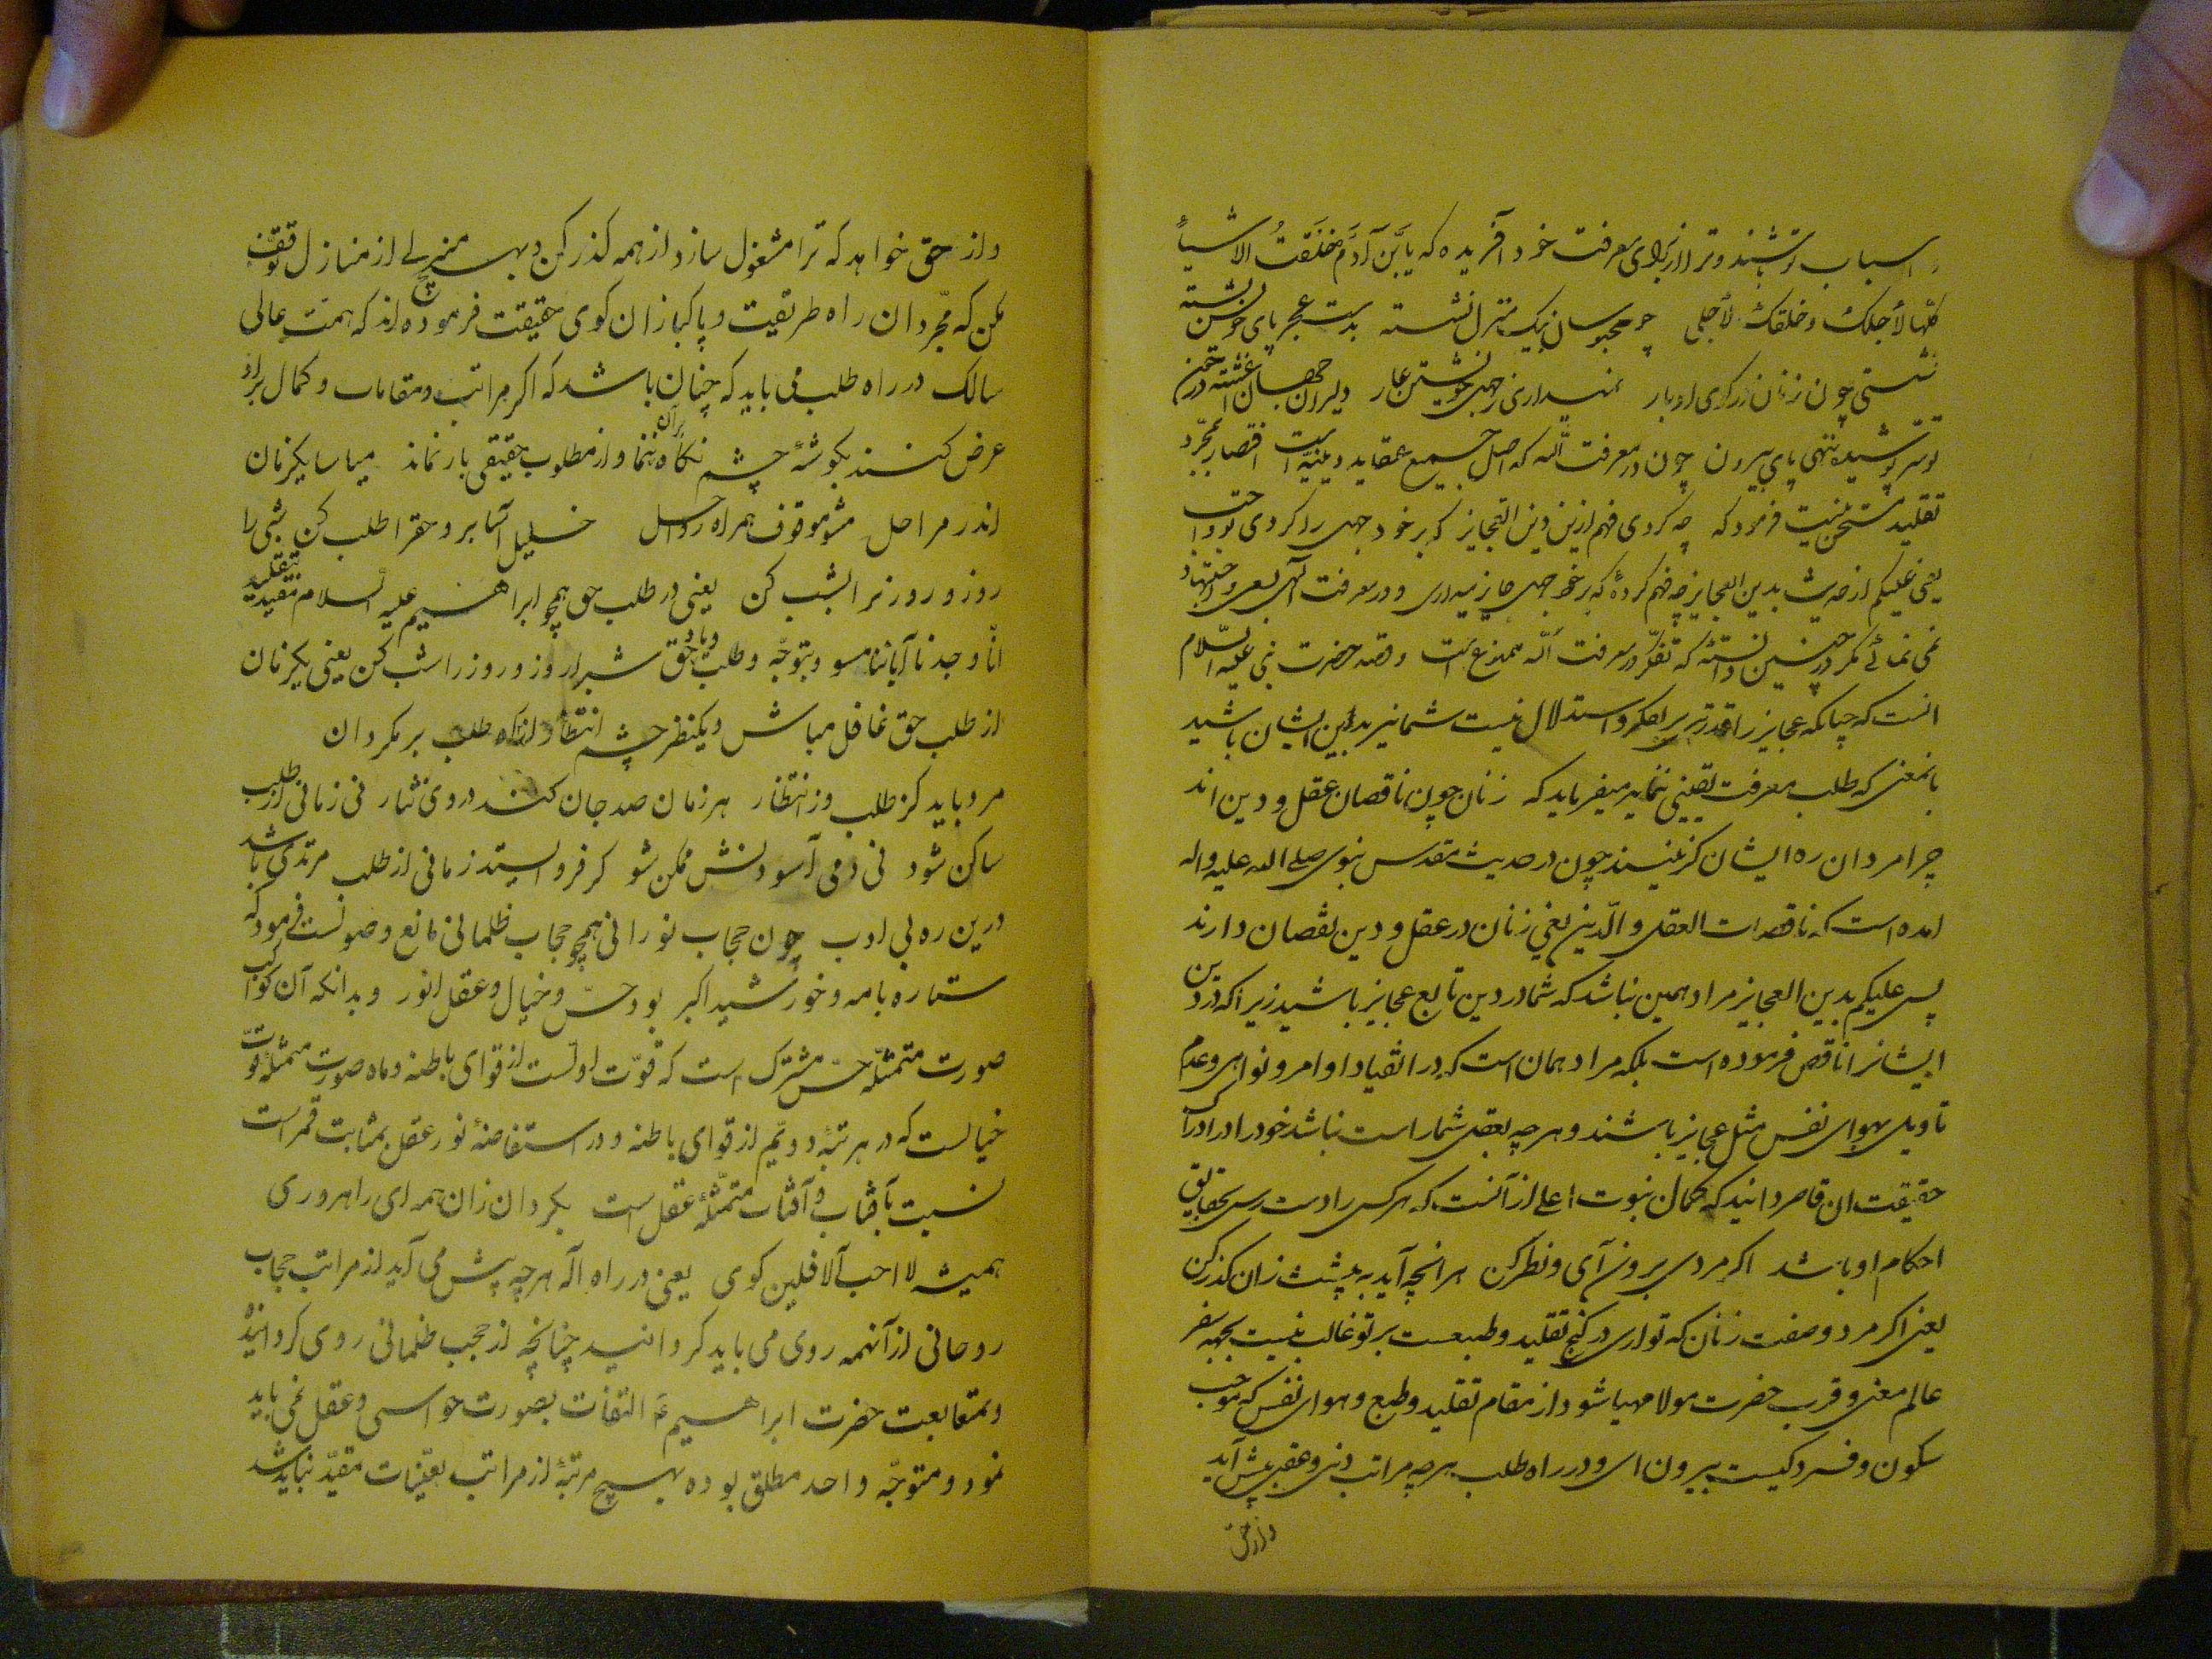 و اسباب تو باشند و ترا از برای معرفت خود آفریده که یابن آدم خلقت الاشیاء
کلها لاجلک و خلقتک لاجلی چو محبوسان بیک منزل نشسته بدست عجز پای خویش بسته
نشستی چون زنان در کوی ادبار نمیداری ز جهل خویشتن عار دلیران جهان آغشته در خون
تو سر پوشیده ننهی پای بیرون چون در معرفت الله که اصل جمیع عقاید دینیه است اقتصار بمجرد
تقلید مستحسن نیست فرمود که چه کردی فهم ازین دین العجایز که بر خود جهل را کردی تو جایز
یعنی علیکم از حدیث بدین العجایز چه فهم کرده که بر خود جهل جایز میداری و در معرفت الهی سعی و اجتهاد
نمی نمائی مکر در چنین دانسته که تفکر در معرفت الله ممنوع است و قصد حضرت نبی علیه السلام
انست که چنانکه عجایز را قدرت بر فکر و استدلال نیست شما نیز بدین ایشان باشید
بانمعنی که طلب معرفت یقینی ننماید میفرماید که زنان چون ناقصان عقل و دین اند
چرا مردان ره ایشان کزینند چون در حدیث مقدس نبوی صلی الله علیه واله
امده است که ناقصات العقل و الدین یعنی زنان در عقل و دین نقصان دارند
پس علیکم بدین العجایز مراد همین نباشد که شما در دین تابع عجایز باشید زیرا که در دین
ایشانرا ناقص فرموده است بلکه مراد همان است که در انقیاد اوامر و نواهی و عدم
تاویل بهوای نفس مثل عجایز باشند و هر چه بعقل شما راست نباشد خود را در ادراک
حقیقت ان قاصر دانید که کمال نبوت اعلی از آنست که هر کس را دست رس بحقایق
احکام او باشد اکر مردی برون آی و نظر کن هر انچه آید به پیشت زان کذر کن
یعنی اکر مردی و صفت زنان که تواری در کنج تقلید و طبیعت بر تو غالب نیست بجهة سفر
عالم معنی و قرب حضرت مولا مهیا شو و از مقام تقلید و طبع و هوای نفس که موجب
سکون و فسردکیست بیرون ای و در راه طلب هر چه مراتب دنی و عقبی پیش آید
و از حق
و از حق خواهد که ترا مشغول سازد از همه کذر کن و بهیچ منزلی از منازل توقف
مکن که مجردان راه طریقت و پاکبازان کوی حقیقت فرموده اند که همت عالی
سالک در راه طلب می باید که چنان باشد که اکر مراتب و مقامات و کمال بر او
عرض کنند بکوشهٔ چشم بران نکاه ننماید و از مطلوب حقیقی باز نماند میاسا یکزمان
اندر مراحل مشو موقوف همراه رواحل خلیل آسا برو حقرا طلب کن شبی را
روز و روزیرا بشب کن یعنی در طلب حق همچو ابراهیم علیه السلام بتقلید مقید
انا وجدنا آبائنا مشو و بتوجه و طلب و یاد حق شبرا روز و روز را شب کن یعنی یکزمان
از طلب حق غافل مباش و یکنظر چشم انتظار از راه طلب بر مکردان
مرد باید کز طلب وز انتظار هر زمان صد جان کند در وی نثار نی زمانی از طلب
ساکن شود نی دمی آسودنش ممکن شود کر فرو ایستد زمانی از طلب مرتدی باشد
درین ره بی ادب چون حجاب نورانی همچو حجاب ظلمانی مانع وصولست فرمود که
ستاره با مه و خورشید اکبر بود حس و خیال و عقل انور و بدانکه آن کوکب
صورت متمثله حس مشترک است که قوت اولست از قوای باطنه و ماه صورت متمثله قوت
خیالست که در مرتبهٔ دویم از قوای باطنه و در استفاضهٔ نور عقل بمثابت قمر است
نسبت بآفتاب و آفتاب متمثله عقل است بکردان زان همه ای راهرو روی
همیشه لا احب الافلین کوی یعنی در راه اله هر چه پیش می آید از مراتب حجاب
روحانی از آنهمه روی می باید کردانید چنانچه از حجب ظلمانی روی کردانیدهٔ
و بمتابعت حضرت ابراهیم ع التفات بصورت حواس و عقل نمی باید
نمود و متوجه واحد مطلق بوده بهیچ مرتبهٔ از مراتب تعینات مقید نباید شد